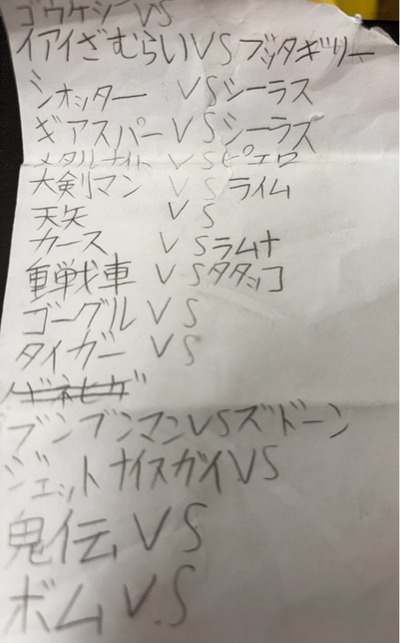 ゴウケシ VS
イアイざむらいVSブッタギリー
シオッター VSシーラス
ギアスパー VSシーラス
メタルナイト VSピエロ
大剣マン VSライム
天矢 VS
カース VSラムナ
重戦車 VSタタッコ
ゴーグル VS
タイガー VS
ブンブンマンVSズドーン
ジェットナイスガイVS
鬼伝 VS
ボム VS